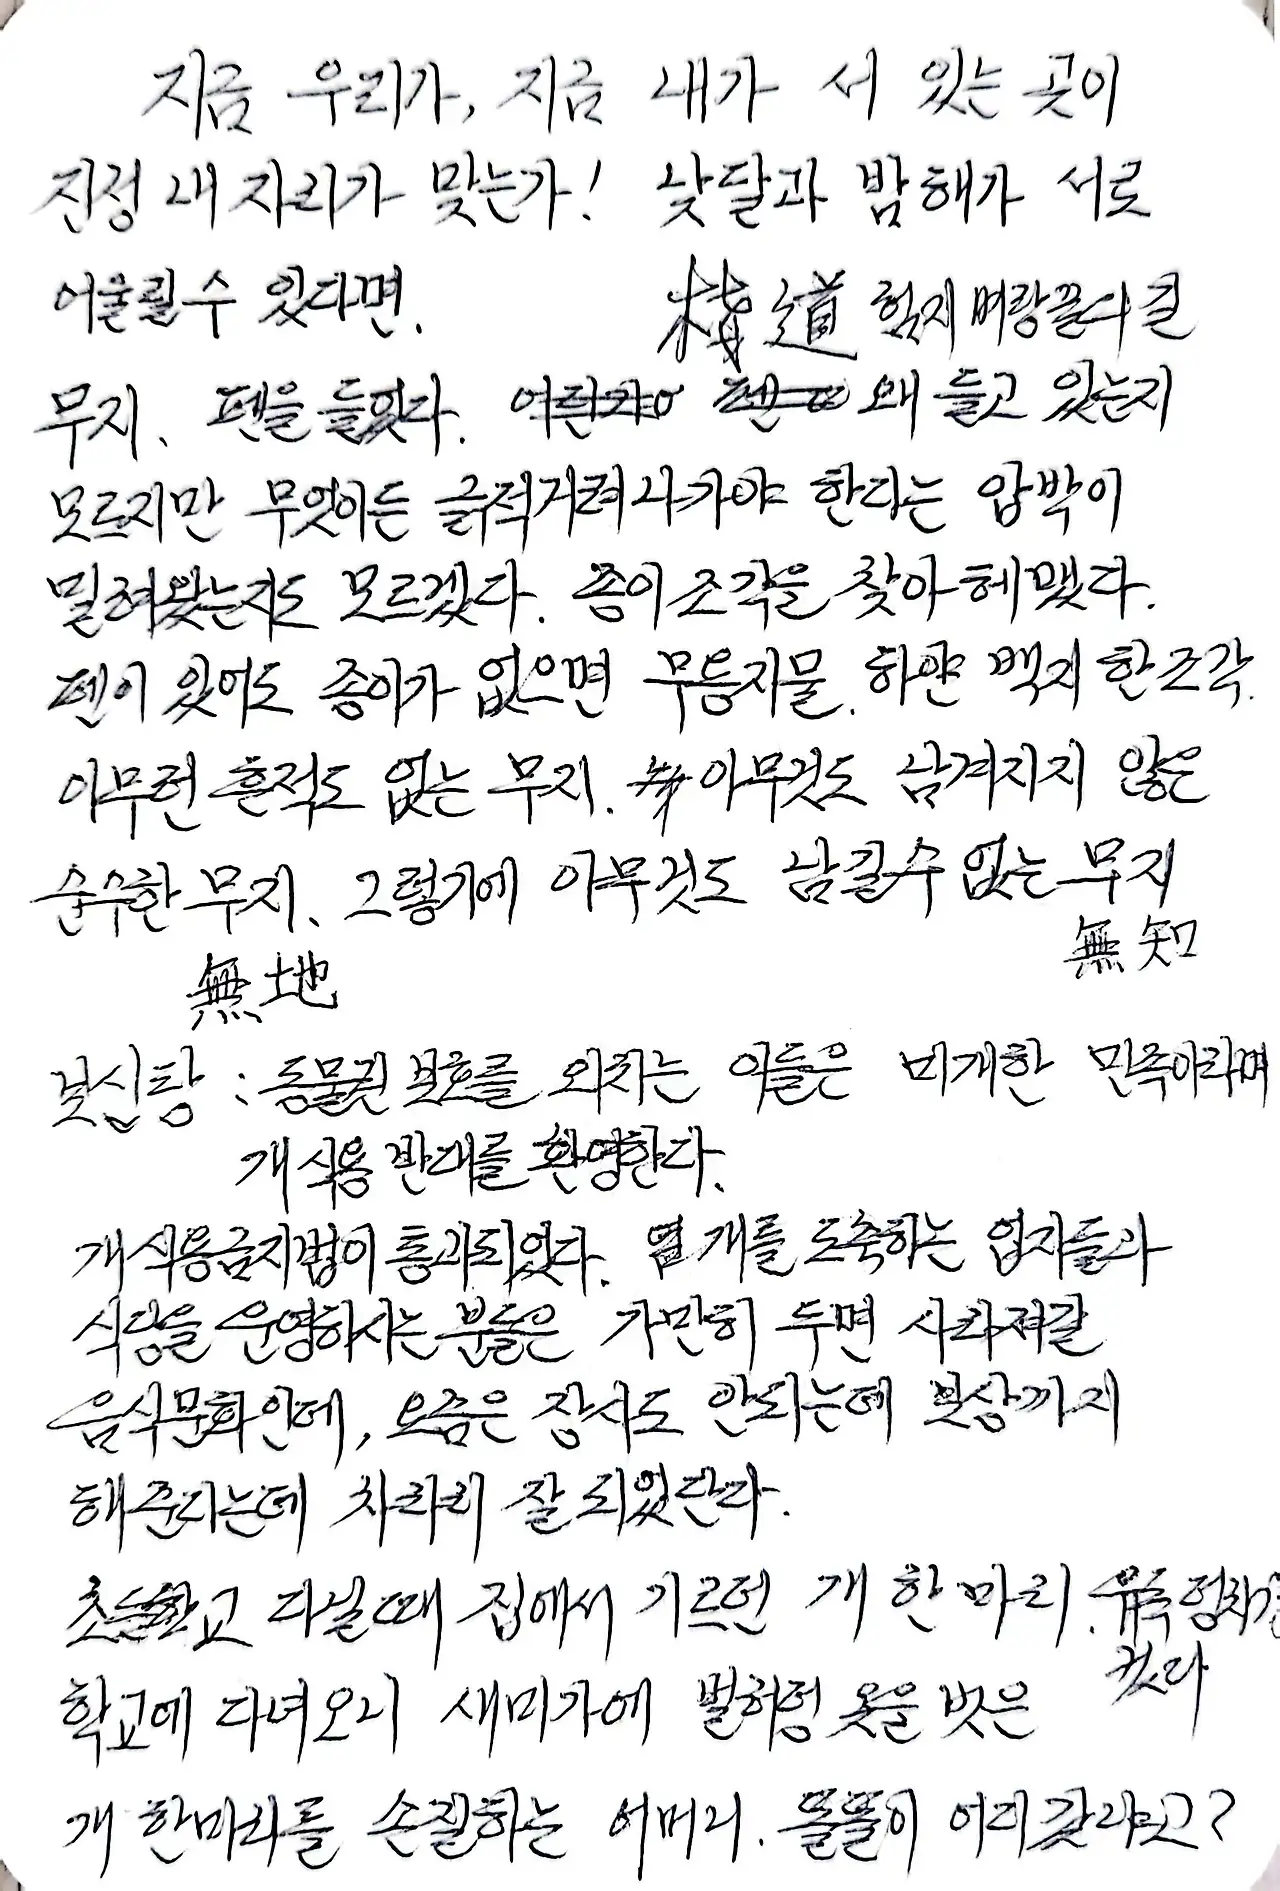 지금 우리가, 지금 내가 서 있는 곳이
진정 내 자리가 맞는가! 낮달과 밤해가 서로
어울릴수 있다면.
棧道 험지 벼랑끝
무지. 펜을 들었다. 왜 들고 있는지
모르지만 무엇이든 긁적거려 나가야 한다는 압박이
밀려왔는지도 모르겠다. 종이조각을 찾아 헤맸다.
펜이 있어도 종이가 없으면 무등지물. 하얀 백지 한조각.
아무런 흔적도 없는 무지. 아무것도 남겨지지 않은
순수한 무지. 그렇기에 아무것도 남길수 없는 무지
無知
無地
보신탕 : 동물권 보호를 외치는 이들은 미개한 민족이라며
개식용 반대를 환영한다.
개식용금지법이 통과되었다. 개를 도축하는 업자들과
식당을 운영하시는 분들은 가만히 두면 사라져갈
음식문화인데, 요즘은 장사도 안되는데 보상까지
해준다는데 차라리 잘 되었단다.
초등학교 다닐때 집에서 기르던 개 한 마리.
컸다
학교에 다녀오니 새미가에 벌허텅 옷을 벗은
개 한마리를 손질하는 어머니. 똘똘이 어디갔냐고?